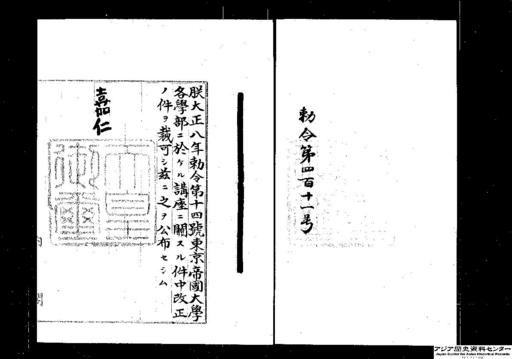 勅令第四百十一号
朕大正八年勅令第十四號東京帝國大學
各學部ニ於ケル講座ニ關スル件中改正
ノ件ヲ裁可シ茲ニ之ヲ公布セシム
嘉仁
内閣
アジア歴史資料センター
Japan Center for Asian Historical Records